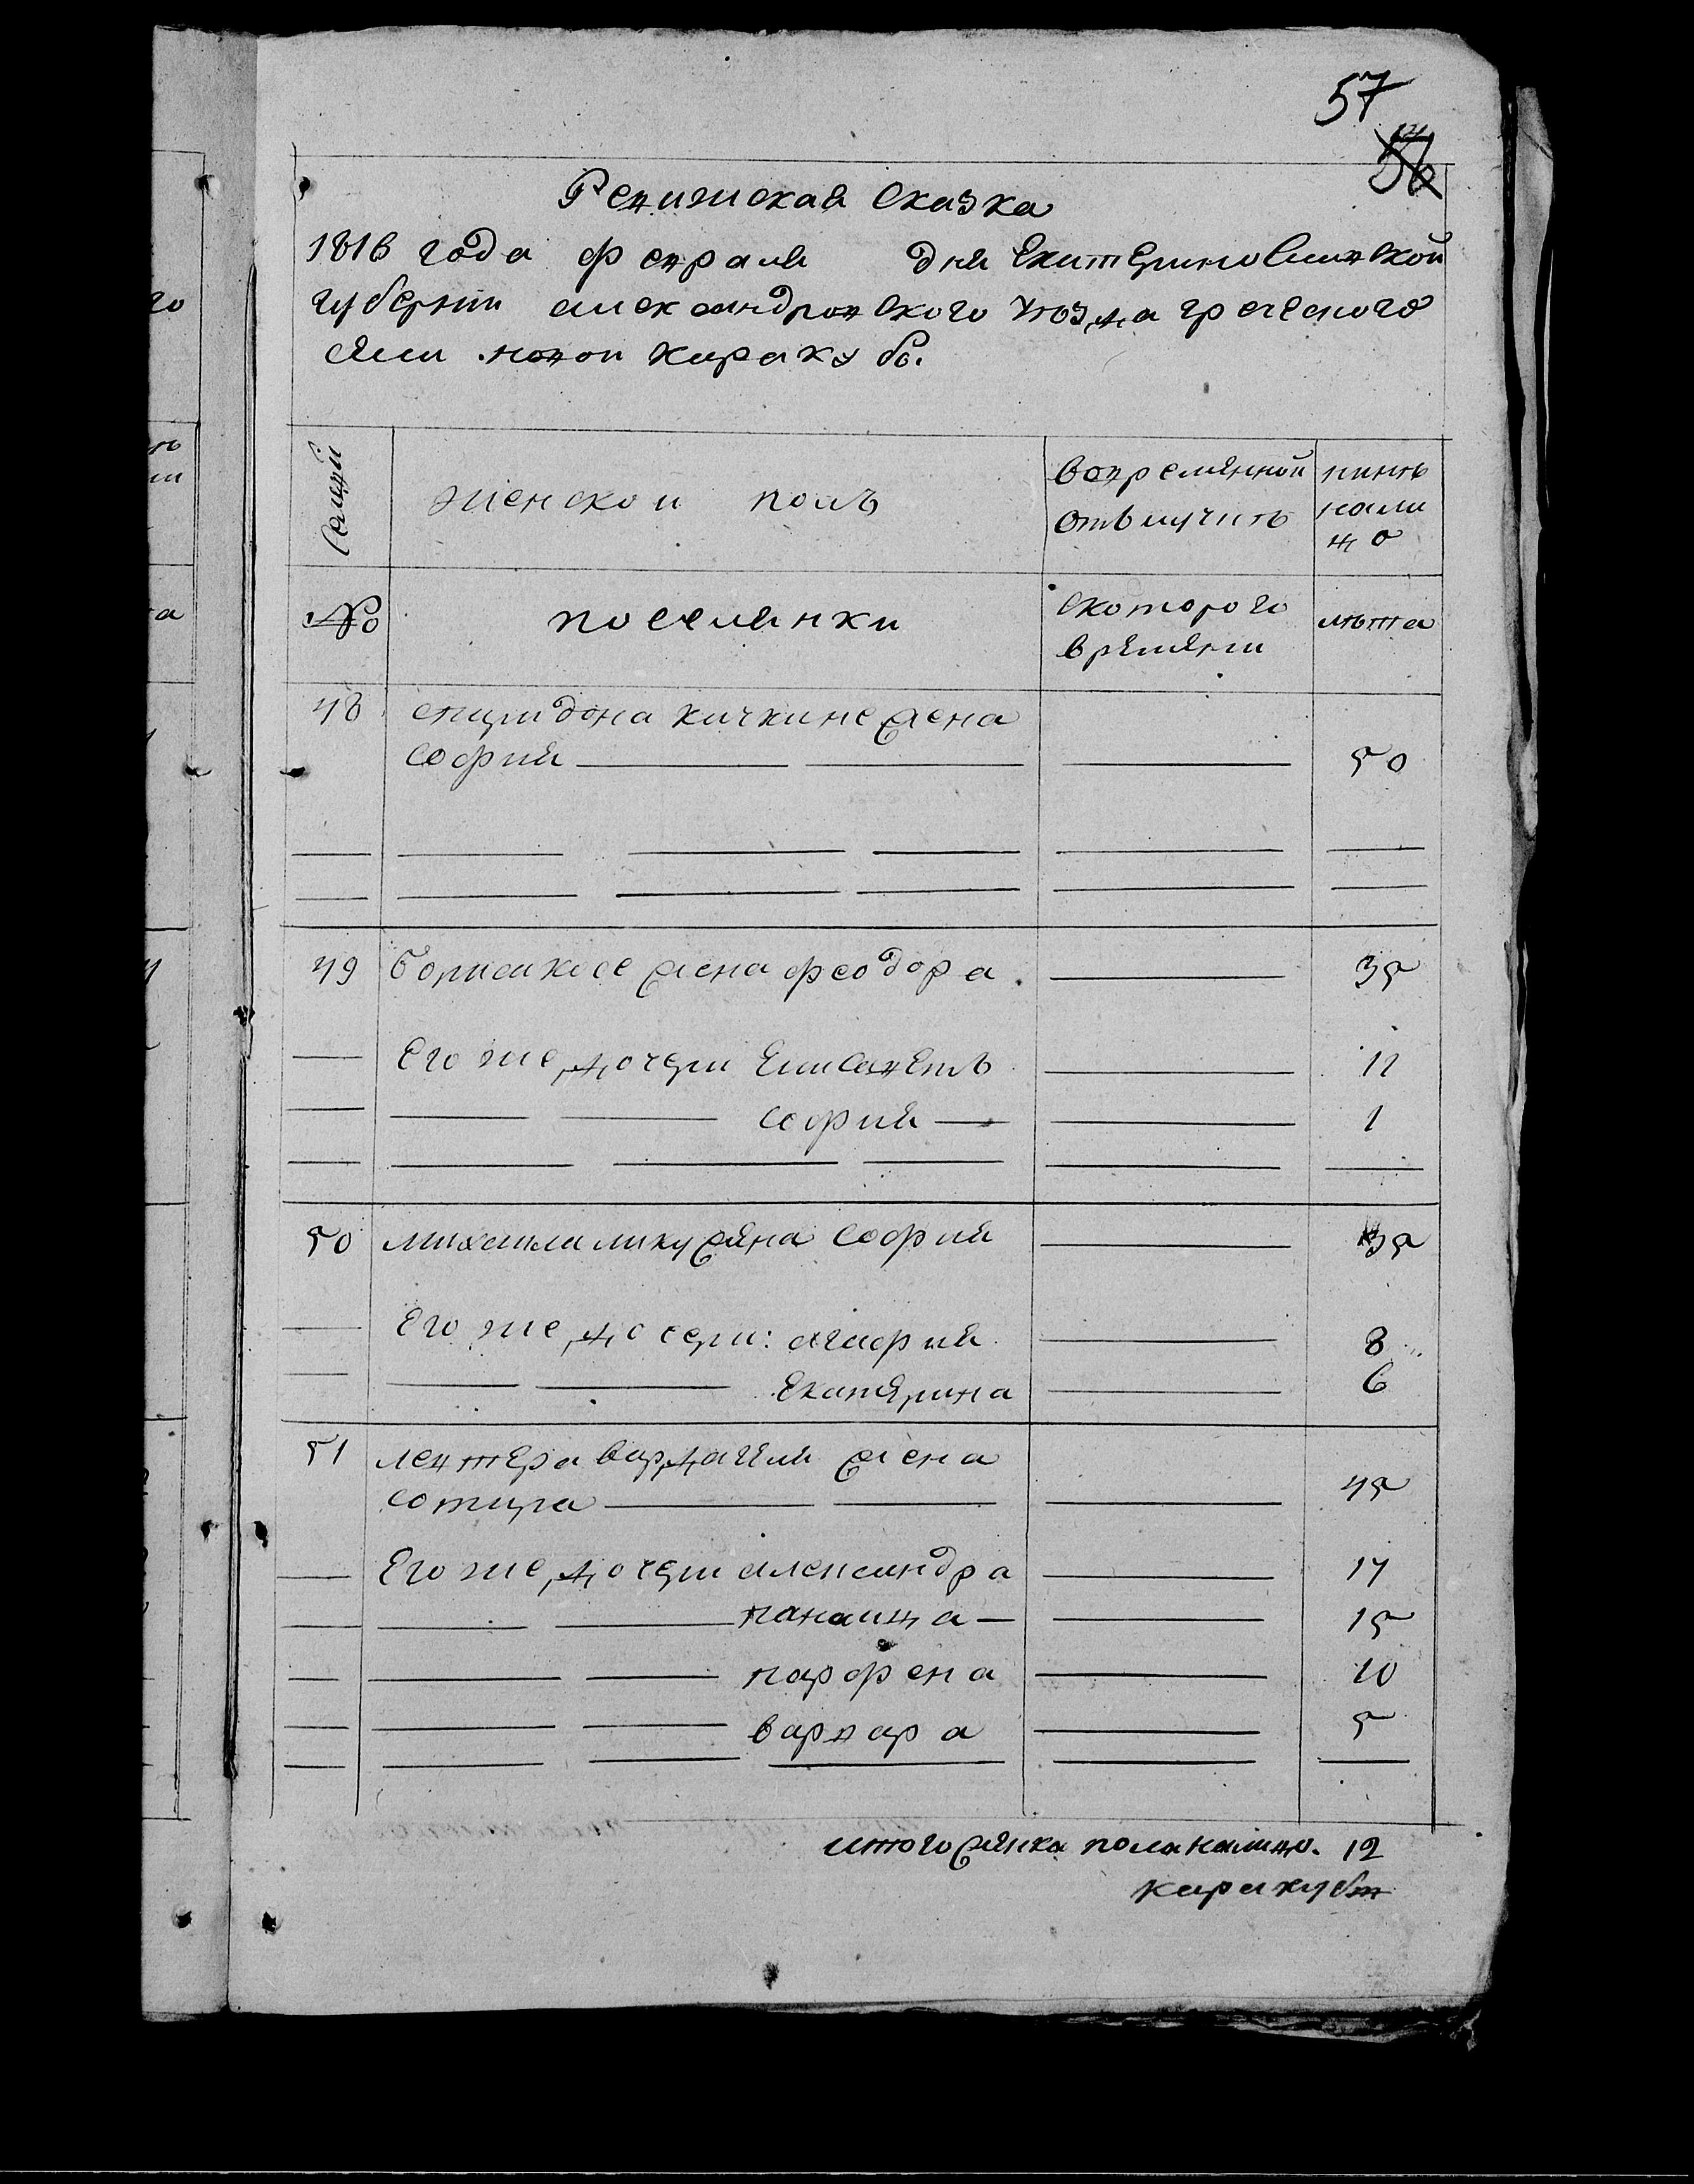 57
56
Ревижская сказка
1816 года февраля дня Екатериновславской
губернии александровского уѣзда греческого
сѣли новой каракубы.
Семей
женской полъ
вовремянной
отълучкѣ
нинѣ
нали
цо
№
поселянки
скоторого
времяни
лѣта
48 спиридона кичкине жена
софия 50
49 борисикосе жена феодора. 35
Его же дочери Елисаветъ 11
софия 1
50 михаила лику жена софия 35
Его же дочери: агафия 8
Екатерина 6
51 левтера вардаили жена
сотира 45
Его же дочери александра 17
панаица 15
парфена 10
варвара 5
итого женска пола налицо. 12